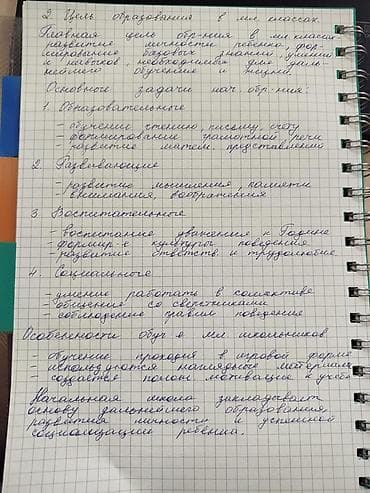 2. Цель образования в мл классах.
Главная цель обр-ния в мл классах
развитие личности ребенка, фор-
мирование базовых знаний, умений
и навыков, необходимых для даль-
нейшего обучения и жизни.
Основные задачи нач. обр-ния:
1. Образовательные
- обучение чтению, письму, счету
- формирование грамотной речи
- развитие матем. представлений
2. Развивающие
- развитие мышления, памяти
внимания, воображения
3. Воспитательные
- воспитание уважения к Родине
- формир-е культуры поведения
- развитие ответств. и трудолюбие
4. Социальные
- умение работать в коллективе
- общение со сверстниками
- соблюдение правил поведение
Особенности обуч мл школьников
- обучение проходит в игровой форме
- используются наглядные материалы
- создается полож мотивация к учебе
Начальная школа закладывает
основу дальнейшего образования
развития личности и успешной
социализации ребенка.